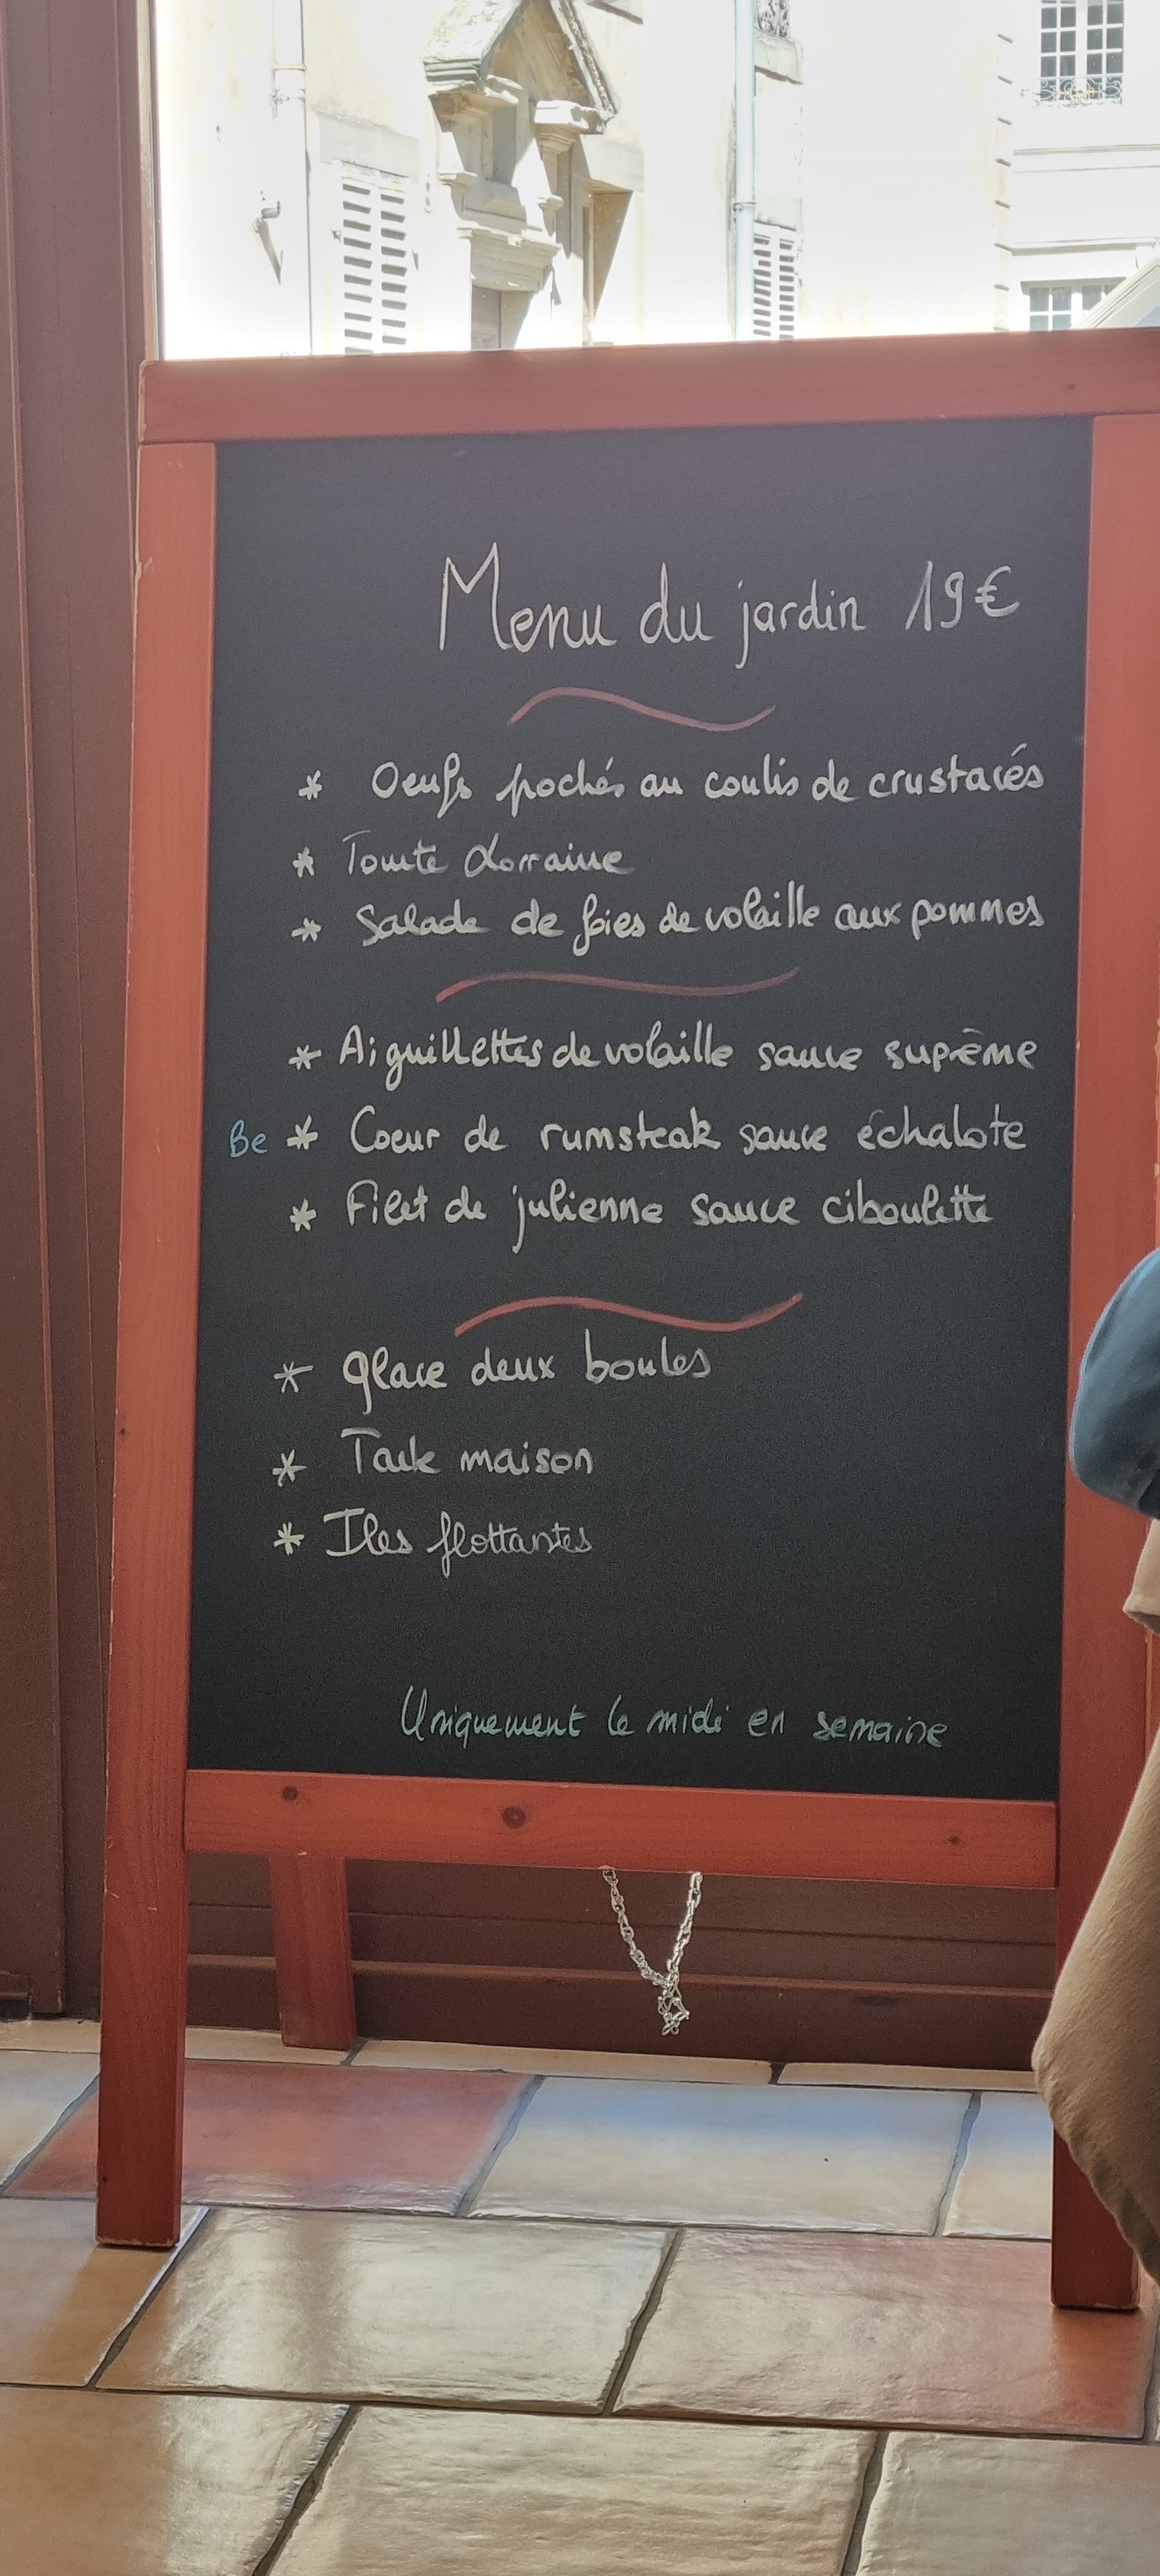 Menu du jardin 19€
* Oeufs pochés au coulis de crustacés
* Tourte Lorraine
* Salade de foies de volaille aux pommes
* Aiguillettes de volaille sauce suprême
Be * Coeur de rumsteak sauce échalote
* Filet de julienne sauce ciboulette
* Glace deux boules
* Tarte maison
* Iles flottantes
Uniquement le midi en semaine